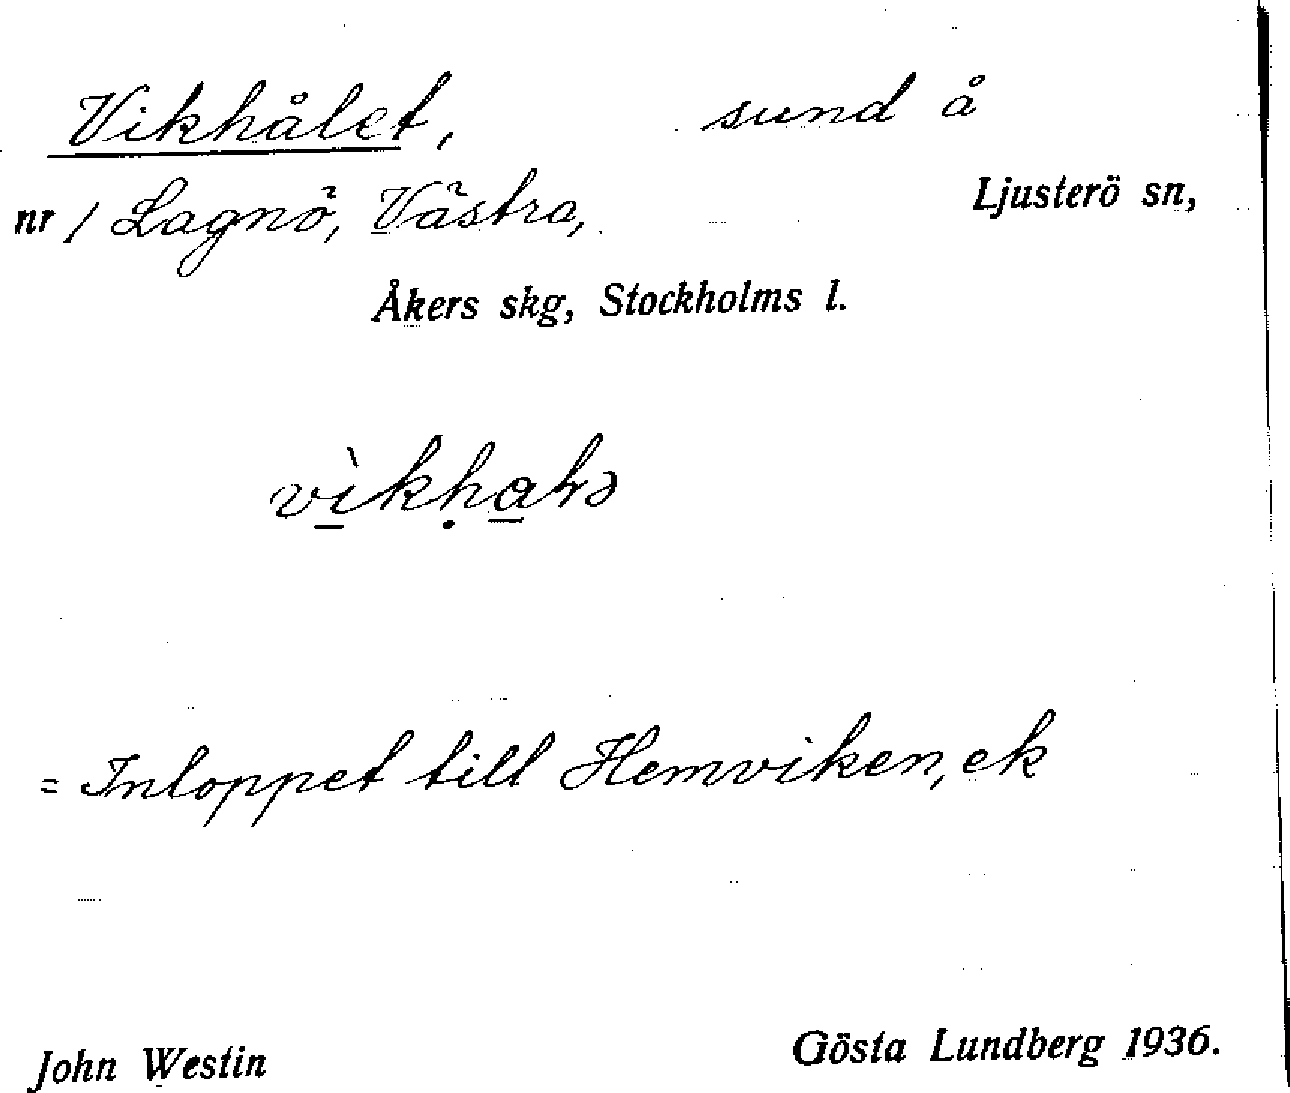 Vikhålet, sund å
nr 1 Lagnö, Västra, Ljusterö sn,
Åkers skg, Stockholms l.
= Inloppet till Hemviken, ek
John Westin Gösta Lundberg 1936.